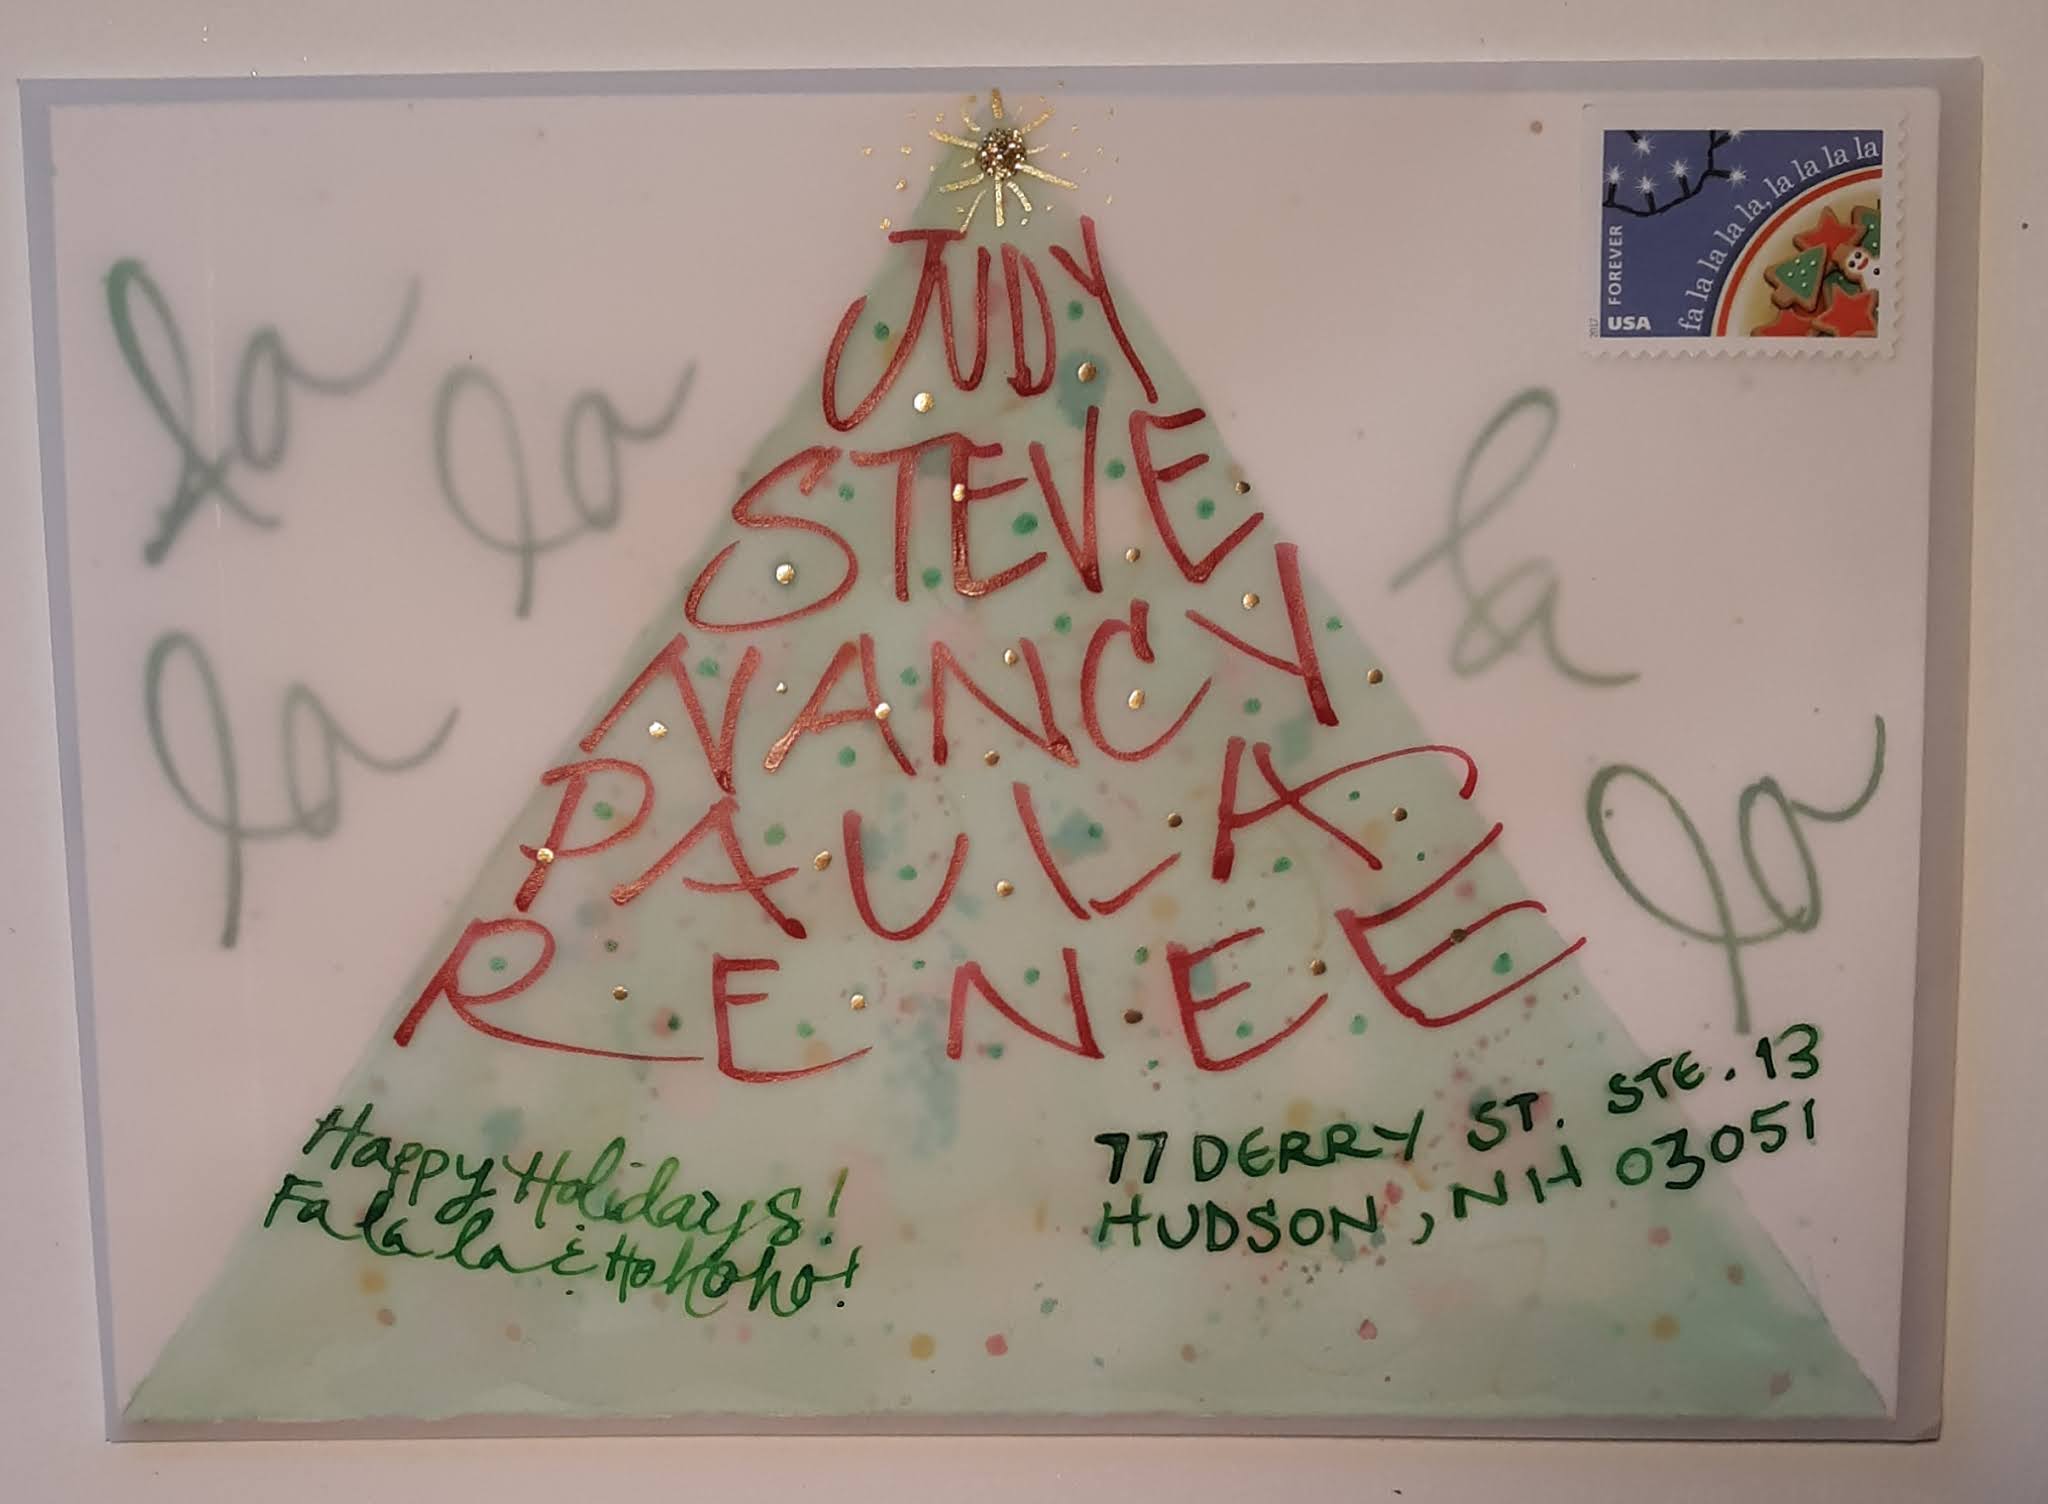 fa la la la la, la la la la
FOREVER
USA
2017
la
la
la
la
la
JUDY
STEVE
NANCY
PAULA
RENEE
77 DERRY ST. STE. 13
HUDSON, NH 03051
Happy Holidays!
Fa la la & Ho ho ho!